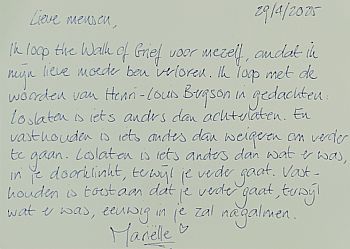 29/4/2025
Lieve mensen,
Ik loop the Walk of Grief voor mezelf, omdat ik
mijn lieve moeder ben verloren. Ik loop met de
woorden van Henri-Louis Bergson in gedachten:
Loslaten is iets anders dan achterlaten. En
vasthouden is iets anders dan weigeren om verder
te gaan. Loslaten is iets anders dan wat er was,
in je doorklinkt, terwijl je verder gaat. Vast-
houden is toestaan dat je verder gaat, terwijl
wat er was, eeuwig in je zal nagalmen.
Mariëlle ♡